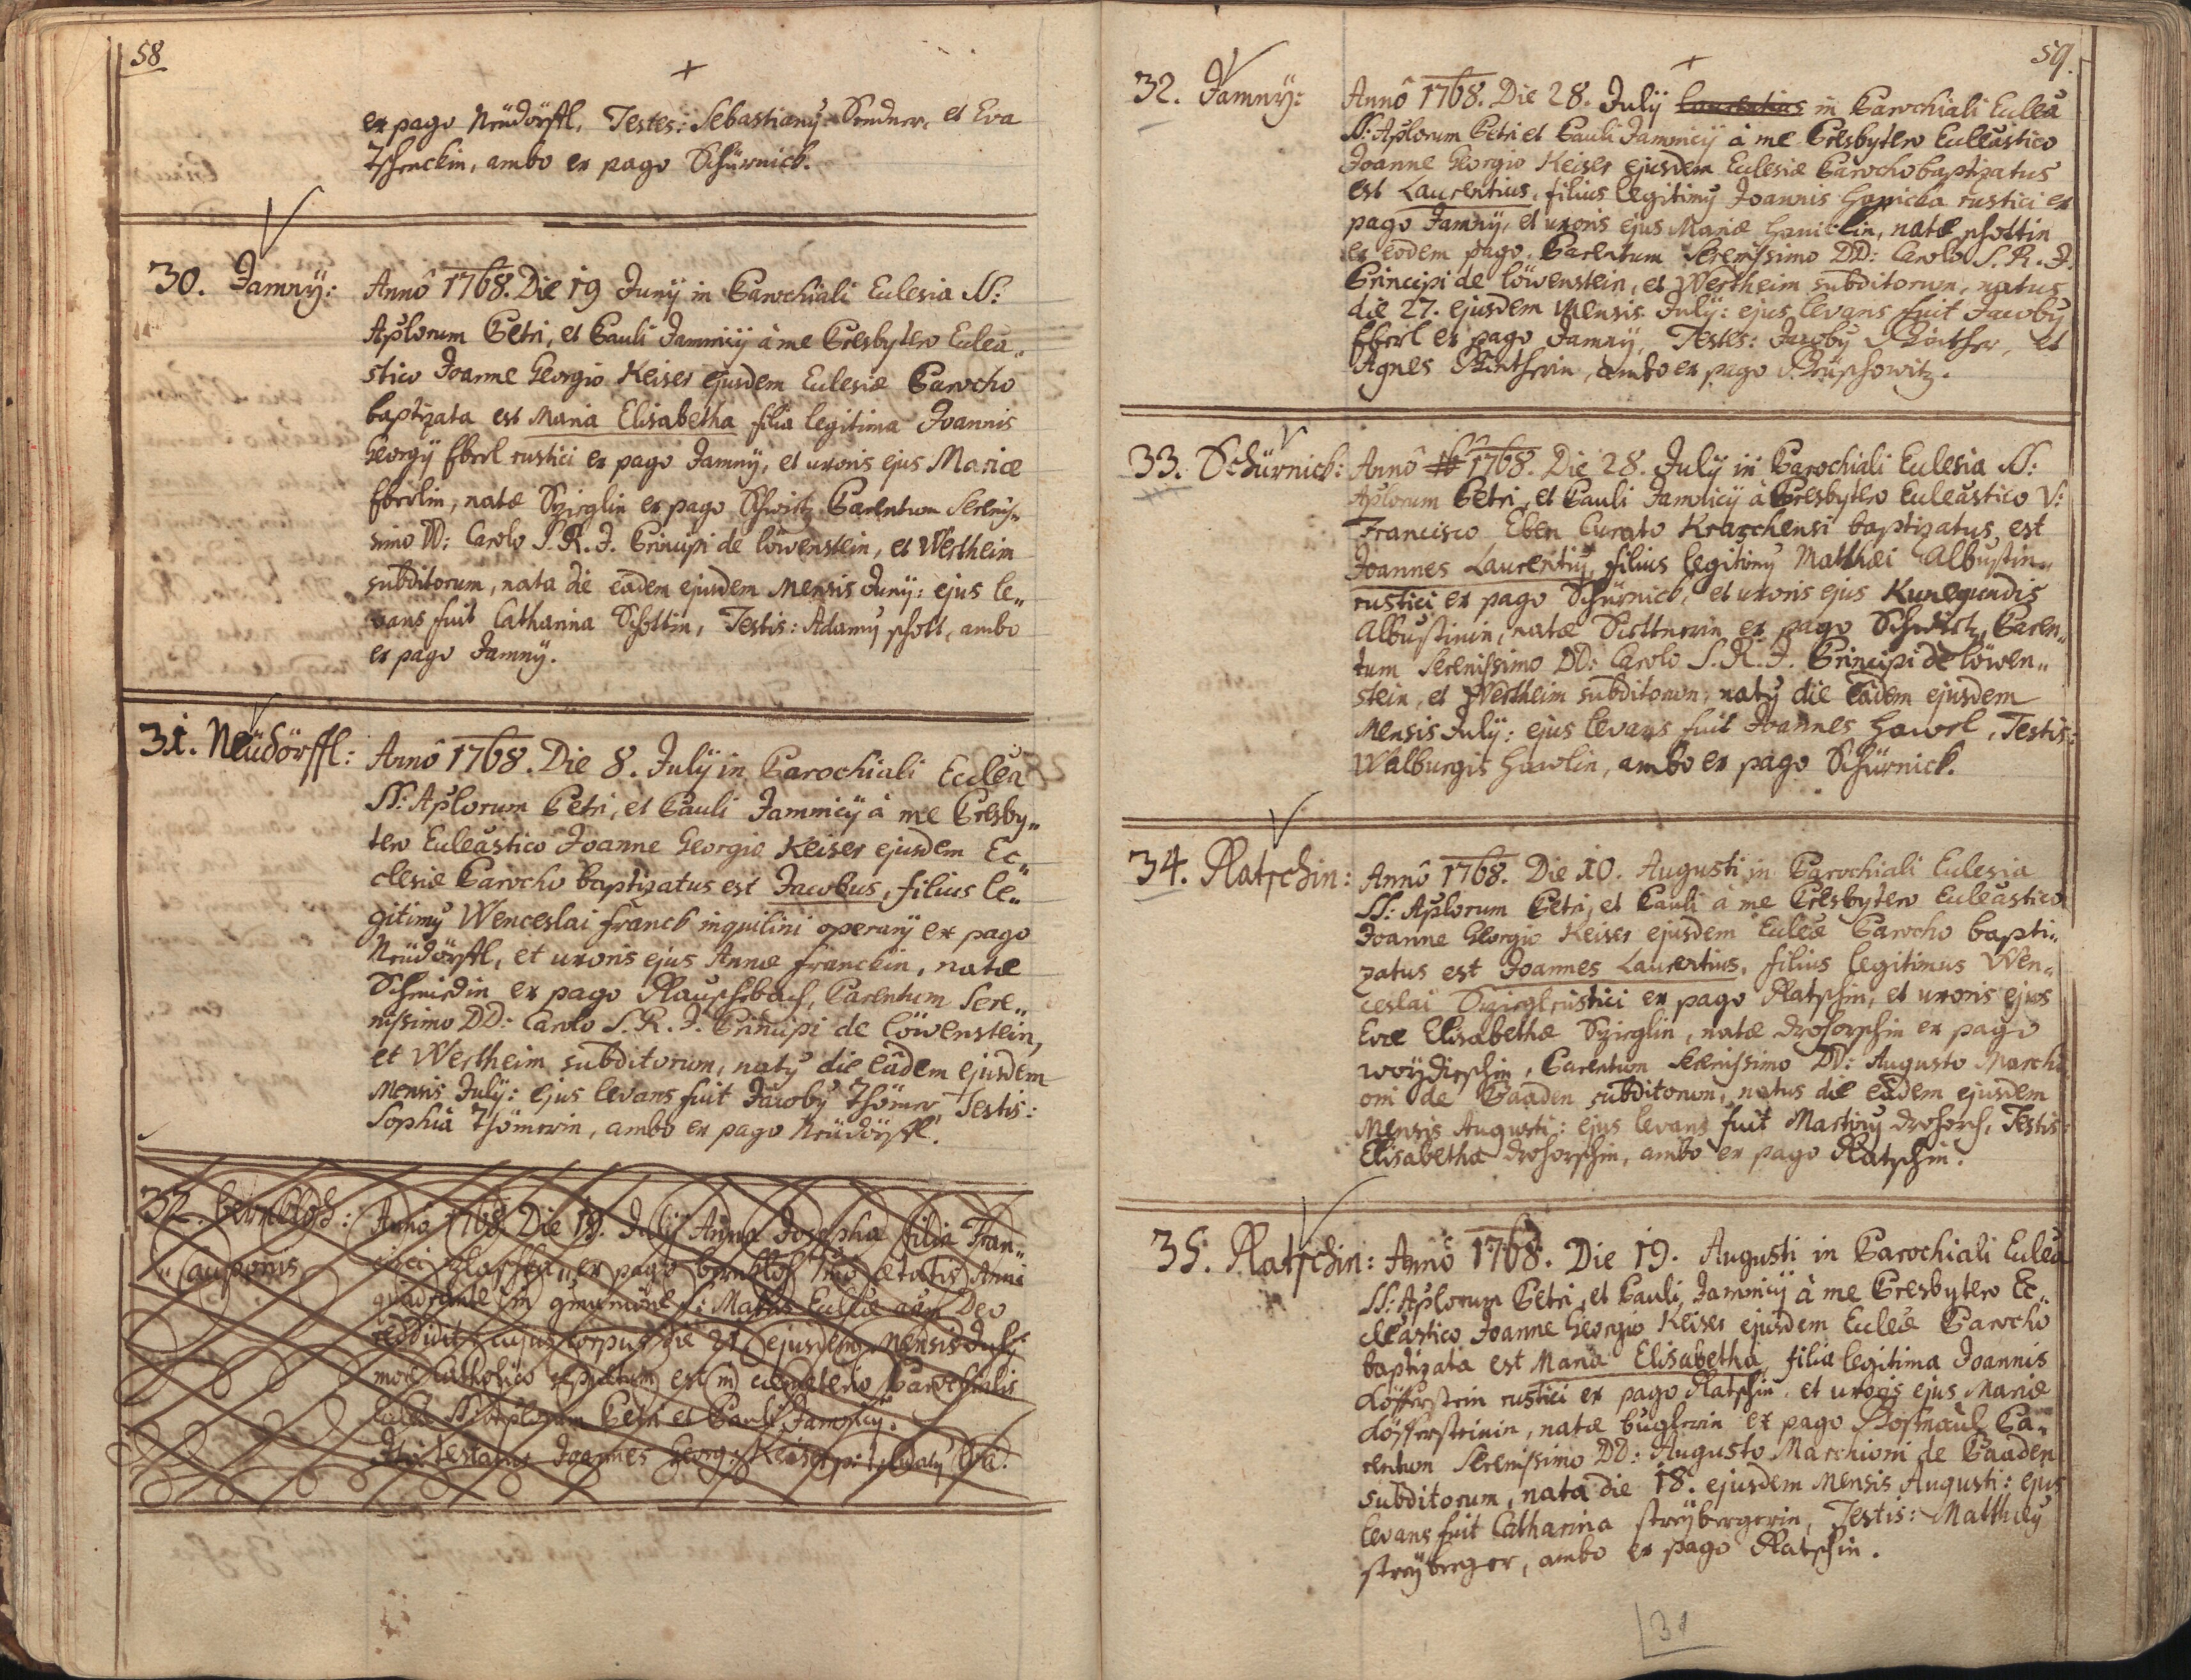 58
ex pago Neüdörffl, Testes: Sebastiang Sendner, et Eva
Tschenckin, ambo ex pago Schürnick.
30. Jamnÿ: Annô 1768. Die 19 Junÿ in Parochiali Eclesia SS:
Aplorum Petri, et Pauli Jamnicÿ â me Presbytero Eclea„
stico Joanne Georgio Keiser ejusdem Eclesiæ Parocho
baptizata est Maria Elisabetha filia legitima Joannis
Georgÿ Eberl rustici ex pago Jamnÿ, et uxoris ejus Mariæ
Eberlin, natæ Szieglin ex pago Parentum Serenis„
simo DD: Carolo S. R. J. Principi de löwenstein, et Wertheim
subditorum, nata die eâdem ejusdem Mensis Junÿ: ejus le„
vans fuit Catharina Schottin, Testis: Adamg schott, ambo
ex pago Jamnÿ.
31. Neüdörffl: Annô 1768. Die 8. Julÿ in Parochiali Eclea
SS: Aplorum Petri, et Pauli Jamnicÿ â me Presby„
tero Ecleastico Joanne Georgio Keiser ejusdem Ec„
clesiæ Parocho baptizatus est Jacobus, filius le„
gitimg Wenceslai franck inquilini operarÿ ex pago
Neüdörffl, et uxoris ejus Annæ franckin, natæ
Schmiedin ex pago Rauschbach, Parentum Sere„
nissimo DD: Carolo S. R. J. Principi de Löwenstein,
et Wertheim subditorum, natg die eâdem ejusdem
Mensis Julÿ: ejus levans fuit Jacobg Thömer, Testis:
Sophia Thömerin, ambo ex pago Neüdörffl.
32. bernkloh: Annô 1768. Die 19. Julÿ Anna Josepha filia Fran„
cisci ex pago bernkloh ætatis Anni
„ cauponis
quadrante in S: Matris Eclæ aãm Deo
reddidit, cujus corpus die 21 ejusdem Mensis Julÿ
more Catholico sepultum est in cæmeterio Parochialis
Eclæ SS: Aplorum Petri et Pauli Jamnicÿ.
Ita testatur Joannes Georg: Keiser
59.
32. Jamnÿ: Annô 1768. Die 28. Julÿ Laurentius in Parochiali Eclea
SS: Aplorum Petri et Pauli Jamnicÿ â me Presbytero Ecleastico
Joanne Georgio Keiser ejusdem Eclesiæ Parocho baptizatus
est Laurentius, filius legitimg Joannis Hanicka rustici ex
pago Jamnÿ, et uxoris ejus Mariæ Hanicklin, natæ schottin
ex eodem pago. Parentum Serenissimo DD: Carolo S. R. J.
Principi de löwenstein, et Wertheim subditorum, natus
die 27. ejusdem Mensis Julÿ: ejus levans fuit Jacobg
Eberl ex pago Jamnÿ, Testes: Jacobg et
Agnes ambo ex pago
33. Schürnick: Annô 1768. Die 28. Julÿ in Parochiali Eclesia SS:
Aplorum Petri, et Pauli Jamnicÿ â Presbytero Ecleastico V:
Francisco Eben Curato Kraschensi baptizatus est
Joannes Laurentig, filius legitimg Matthæi Albustin„
rustici ex pago Schürnick, et uxoris ejus Kunegundis
Albustinin, natæ ex pago Paren„
tum Serenissimo DD: Carolo S. R. J. Principi de löwen„
stein, et Wertheim subditorum, natg die eâdem ejusdem
Mensis Julÿ: ejus levans fuit Joannes Hawel, Testis:
Walburgis Hawlin, ambo ex pago Schürnick.
34. Ratschin: Annô 1768. Die 10. Augusti in Parochiali Eclesia
SS: Aplorum Petri, et Pauli â me Presbytero Ecleastico
Joanne Georgio Keiser ejusdem Eclæ Parocho bapti„
zatus est Joannes Laurentius, filius legitimus Wen„
ceslai Sziegl rustici ex pago Ratschin, et uxoris ejus
Evæ Elisabethæ Szieglin, natæ droforschin ex pago
woÿdieschin, Parentum Serenissimo DD: Augusto Marchi
oni de Baaden subditorum, natus die eâdem ejusdem
Mensis Augusti: ejus levans fuit Marting droforsch, Testis:
Elisabetha droforschin, ambo ex pago Ratschin.
35. Ratschin: Annô 1768. Die 19. Augusti in Parochiali Eclea
SS: Aplorum Petri, et Pauli Jamnicÿ â me Presbytero Ec„
cleastico Joanne Georgio Keiser ejusdem Eclæ Parocho
baptizata est Maria Elisabetha, filia legitima Joannis
döfferstein rustici ex pago Ratschin, et uxoris ejus Mariæ
döffersteinin, natæ buglerin ex pago Pa„
rentum Serenissimo DD: Augusto Marchioni de Baaden
subditorum, nata die 18. ejusdem Mensis Augusti: ejus
levans fuit Catharina streÿbergerin, Testis: Matthæg
streÿberger, ambo ex pago Ratschin.
31